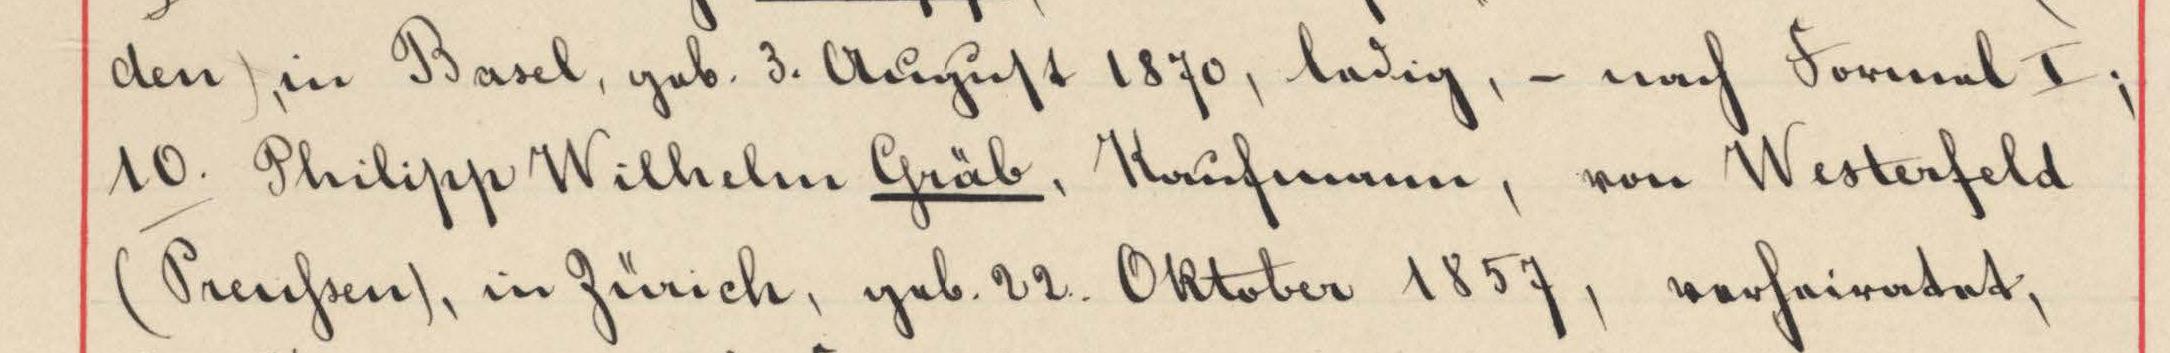 den), in Basel, geb. 3. August 1870, ledig, - nach Formel I;
10. Philipp Wilhelm Gräb, Kaufmann, von Westerfeld
(Preussen), in Zürich, geb. 22. Oktober 1857, verheiratet,